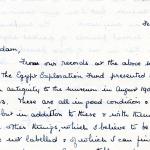 Fe
dam,
From our records at the above i
The Egypt Exploration Fund presented
antiquity to the museum in August 190
3. These are all in good condition &
but in addition to these & with them
other things, which I believe to be
not labelled & of which I can fin